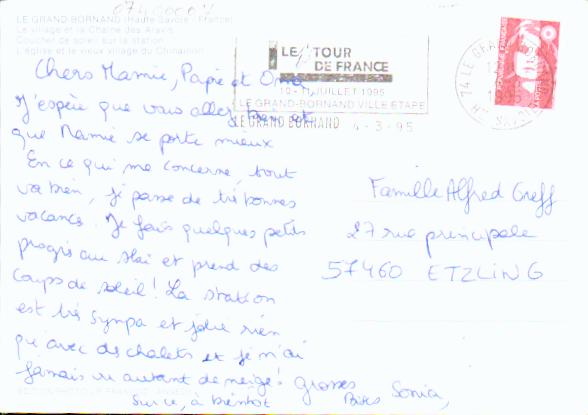 0740000
LE GRAND BORNAND (Haute Savoie - France)
Le village et la Chaîne des Aravis
Coucher de soleil sur la station
L'église et le vieux village du Chinaillon
LE TOUR
DE FRANCE
10-11 JUILLET 1995
LE GRAND-BORNAND VILLE ETAPE
LE GRAND BORNAND 4-3-95
74 LE GRAND
HTE SAVOIE
Chers Mamie, Papie et Oma
J'espère que vous allez bien et
que Mamie se porte mieux
En ce qui me concerne, tout
va bien, je passe de très bonnes
vacances. Je fais quelques petits
progrès au ski et prend des
coups de soleil! La station
est très sympa et jolie rien
qu'avec des chalets et je n'ai
jamais vu autant de neige! grosses
Sur ce, à bientôt Bises Sonia,
Famille Alfred Greff
27 rue principale
57460 ETZLING